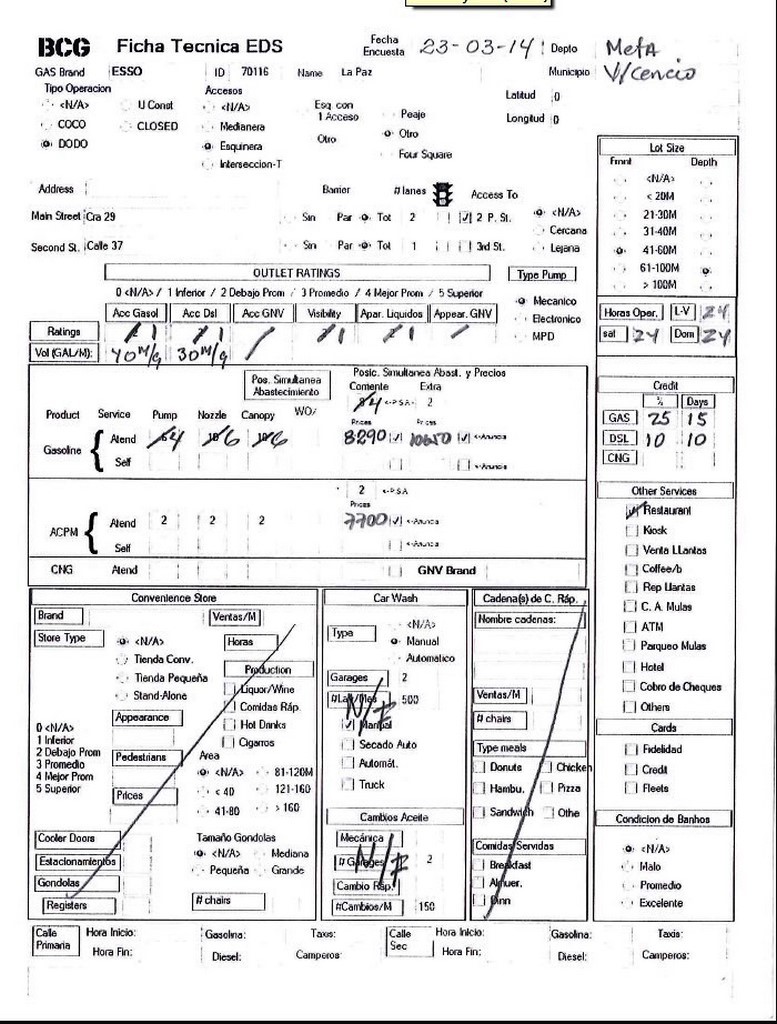 BCG Ficha Tecnica EDS Fecha Encuesta 23-03-14 Depto Meta
GAS Brand ESSO ID 70116 Name La Paz Municipio V/cencio
Tipo Operacion Accesos Latitud 0
<N/A> U Const <N/A> Esq. con 1 Acceso Peaje Longitud 0
COCO CLOSED Medianera Otro Otro
DODO Esquinera Four Square
Interseccion-T
Lot Size
Front Depth
<N/A>
< 20M
21-30M
31-40M
41-60M
61-100M
> 100M
Address Barrier # lanes Access To
Main Street Cra 29 Sin Par Tot 2 2 P. St. <N/A>
Cercana
Second St. Calle 37 Sin Par Tot 1 3rd St. Lejana
OUTLET RATINGS Type Pump
0 <N/A> / 1 Inferior / 2 Debajo Prom / 3 Promedio / 4 Mejor Prom / 5 Superior
Acc Gasol Acc Dsl Acc GNV Visibility Apar. Liquidos Appear. GNV
Mecanico
Electronico
MPD
Ratings 1 1 1 1
Vol (GAL/M): 40 M/g 30 M/g
Horas Oper. L-V 24
sal 24 Dom 24
Pos. Simultanea Abastecimiento Posic. Simultanea Abast. y Precios
Corriente Extra
4 <-P.S.A- 2
Product Service Pump Nozzle Canopy WO/ Prices Prices
Gasoline Atend 4 6 6 8290 <-Anuncia 10650 <-Anuncia
Self <-Anuncia <-Anuncia
Credit
% Days
GAS 25 15
DSL 10 10
CNG
2 <-P.S.A
Prices
ACPM Atend 2 2 2 7700 <-Anuncia
Self <-Anuncia
CNG Atend GNV Brand
Other Services
Restaurant
Kiosk
Venta LLantas
Coffee/b
Rep Llantas
C. A. Mulas
ATM
Parqueo Mulas
Hotel
Cobro de Cheques
Others
Cards
Fidelidad
Credit
Fleets
Condicion de Banhos
<N/A>
Malo
Promedio
Excelente
Convenience Store
Brand Ventas/M
Store Type <N/A> Horas
Tienda Conv. Production
Tienda Pequeña Liquor/Wine
Stand-Alone Comidas Ráp.
Appearance Hot Drinks
Cigarros
0 <N/A>
1 Inferior
2 Debajo Prom
3 Promedio
4 Mejor Prom
5 Superior
Pedestrians
Prices
Area
<N/A> 81-120M
< 40 121-160
41-80 > 160
Cooler Doors Tamaño Gondolas
Estacionamientos <N/A> Mediana
Gondolas Pequeña Grande
Registers # chairs
Car Wash
Type <N/A>
Manual
Automatico
Garages 2
500
N/F
Manual
Secado Auto
Automát.
Truck
Cambios Aceite
Mecánica
# Garages 2
N/F
Cambio Ráp.
#Cambios/M 150
Cadena(s) de C. Ráp.
Nombre cadenas:
Ventas/M
# chairs
Type meals
Donuts Chicken
Hambu. Pizza
Sandwich Othe
Comidas Servidas
Breakfast
Almuer.
Dinn
Calle Primaria Hora Inicio: Gasolina: Taxis: Calle Sec Hora Inicio: Gasolina: Taxis:
Hora Fin: Diesel: Camperos: Hora Fin: Diesel: Camperos: